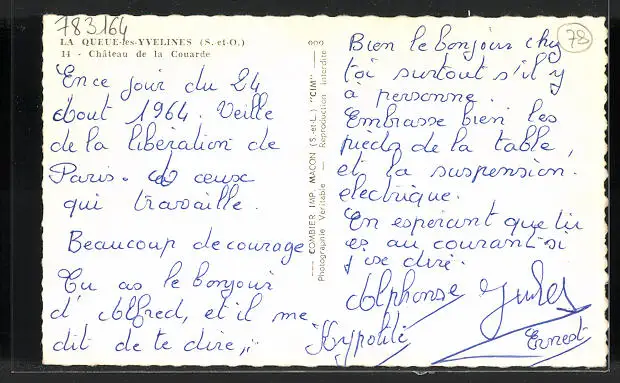 783164
LA QUEUE-les-YVELINES (S.-et-O.)
14 - Château de la Couarde
En ce jour du 24
about 1964. Veille
de la libération de
Paris. à ceux
qui travaille.
Beaucoup de courage
Tu as le bonjour
d'Alfred, et il me
dit de te dire,
COMBIER IMP. MACON (S.-et-L.) "CIM"
Photographie Véritable - Reproduction interdite
78
Bien le bonjour chez
toi surtout s'il y
à personne.
Embrasse bien les
pieds de la table,
et la suspension.
electrique.
En espérant que tu
es au courant si
j'ose dire.
Alphonse Jules
Hypolite
Ernest